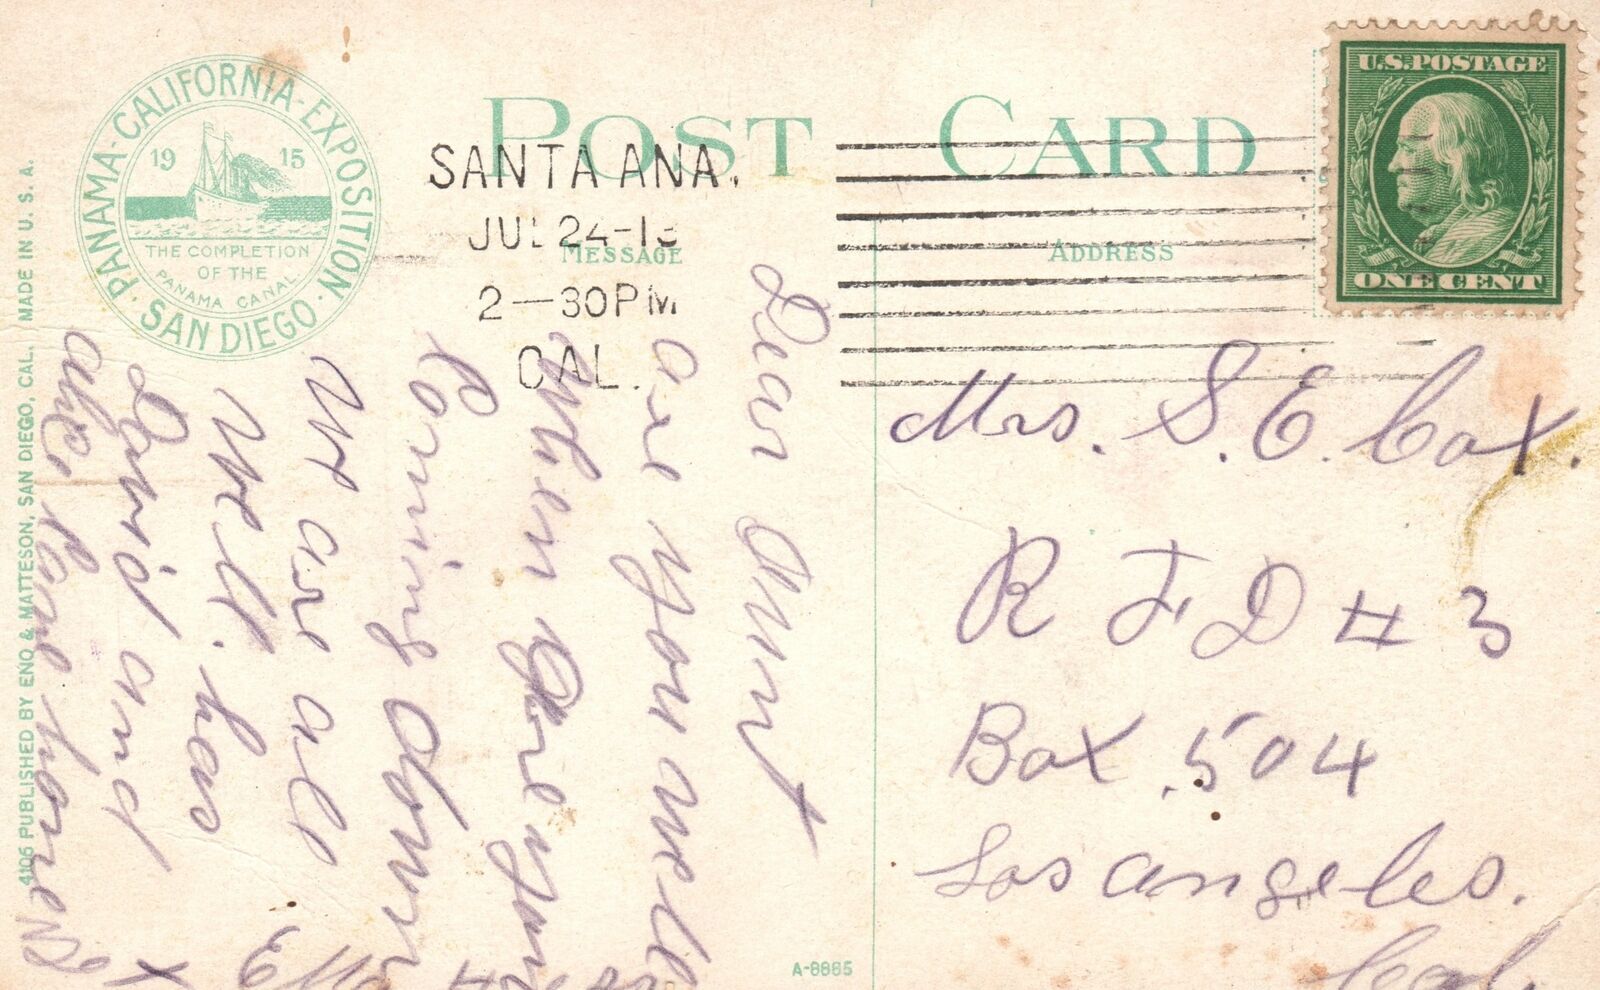 PANAMA-CALIFORNIA-EXPOSITION
19 15
THE COMPLETION
OF THE
PANAMA CANAL
SAN DIEGO
POST CARD
SANTA ANA.
JUL 24-13
2-30 PM
CAL.
MESSAGE
ADDRESS
U.S. POSTAGE
ONE CENT
4106 PUBLISHED BY ENO & MATTESON, SAN DIEGO, CAL. MADE IN U.S.A.
Dear Aunt
are you well
When are you
Coming down
We are all
Well. has
David and
Mrs. S. E. Cox.
R F D # 3
Box 504
Los angeles.
Cal.
A-8885